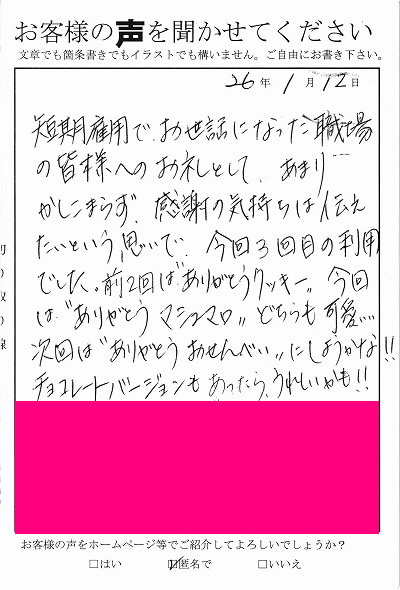 お客様の声を聞かせてください
文章でも箇条書きでもイラストでも構いません。ご自由にお書き下さい。
26年 1月 12日
短期雇用で、お世話になった職場
の皆様へのお礼として、あまり
かしこまらず、感謝の気持ちは伝え
たいという思いで、今回3回目の利用
でした。前2回は"ありがとうクッキー"、今回
は"ありがとうマシュマロ"どちらも可愛…
次回は"ありがとうおせんべい"にしようかな!!
チョコレートバージョンもあったら、うれしいかも!!
切り取り線
お客様の声をホームページ等でご紹介してよろしいでしょうか?
□はい ☑匿名で □いいえ